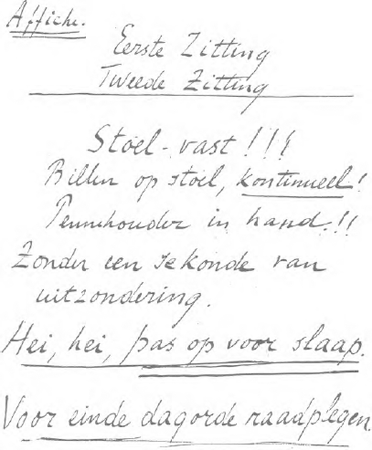 Affiche.
Eerste Zitting
Tweede Zitting
Stoel-vast!!!
Billen op stoel, kontinueel!
Pennehouder in hand!!
Zonder een sekonde van
uitzondering.
Hei, hei, pas op voor slaap.
Voor einde dagorde raadplegen.